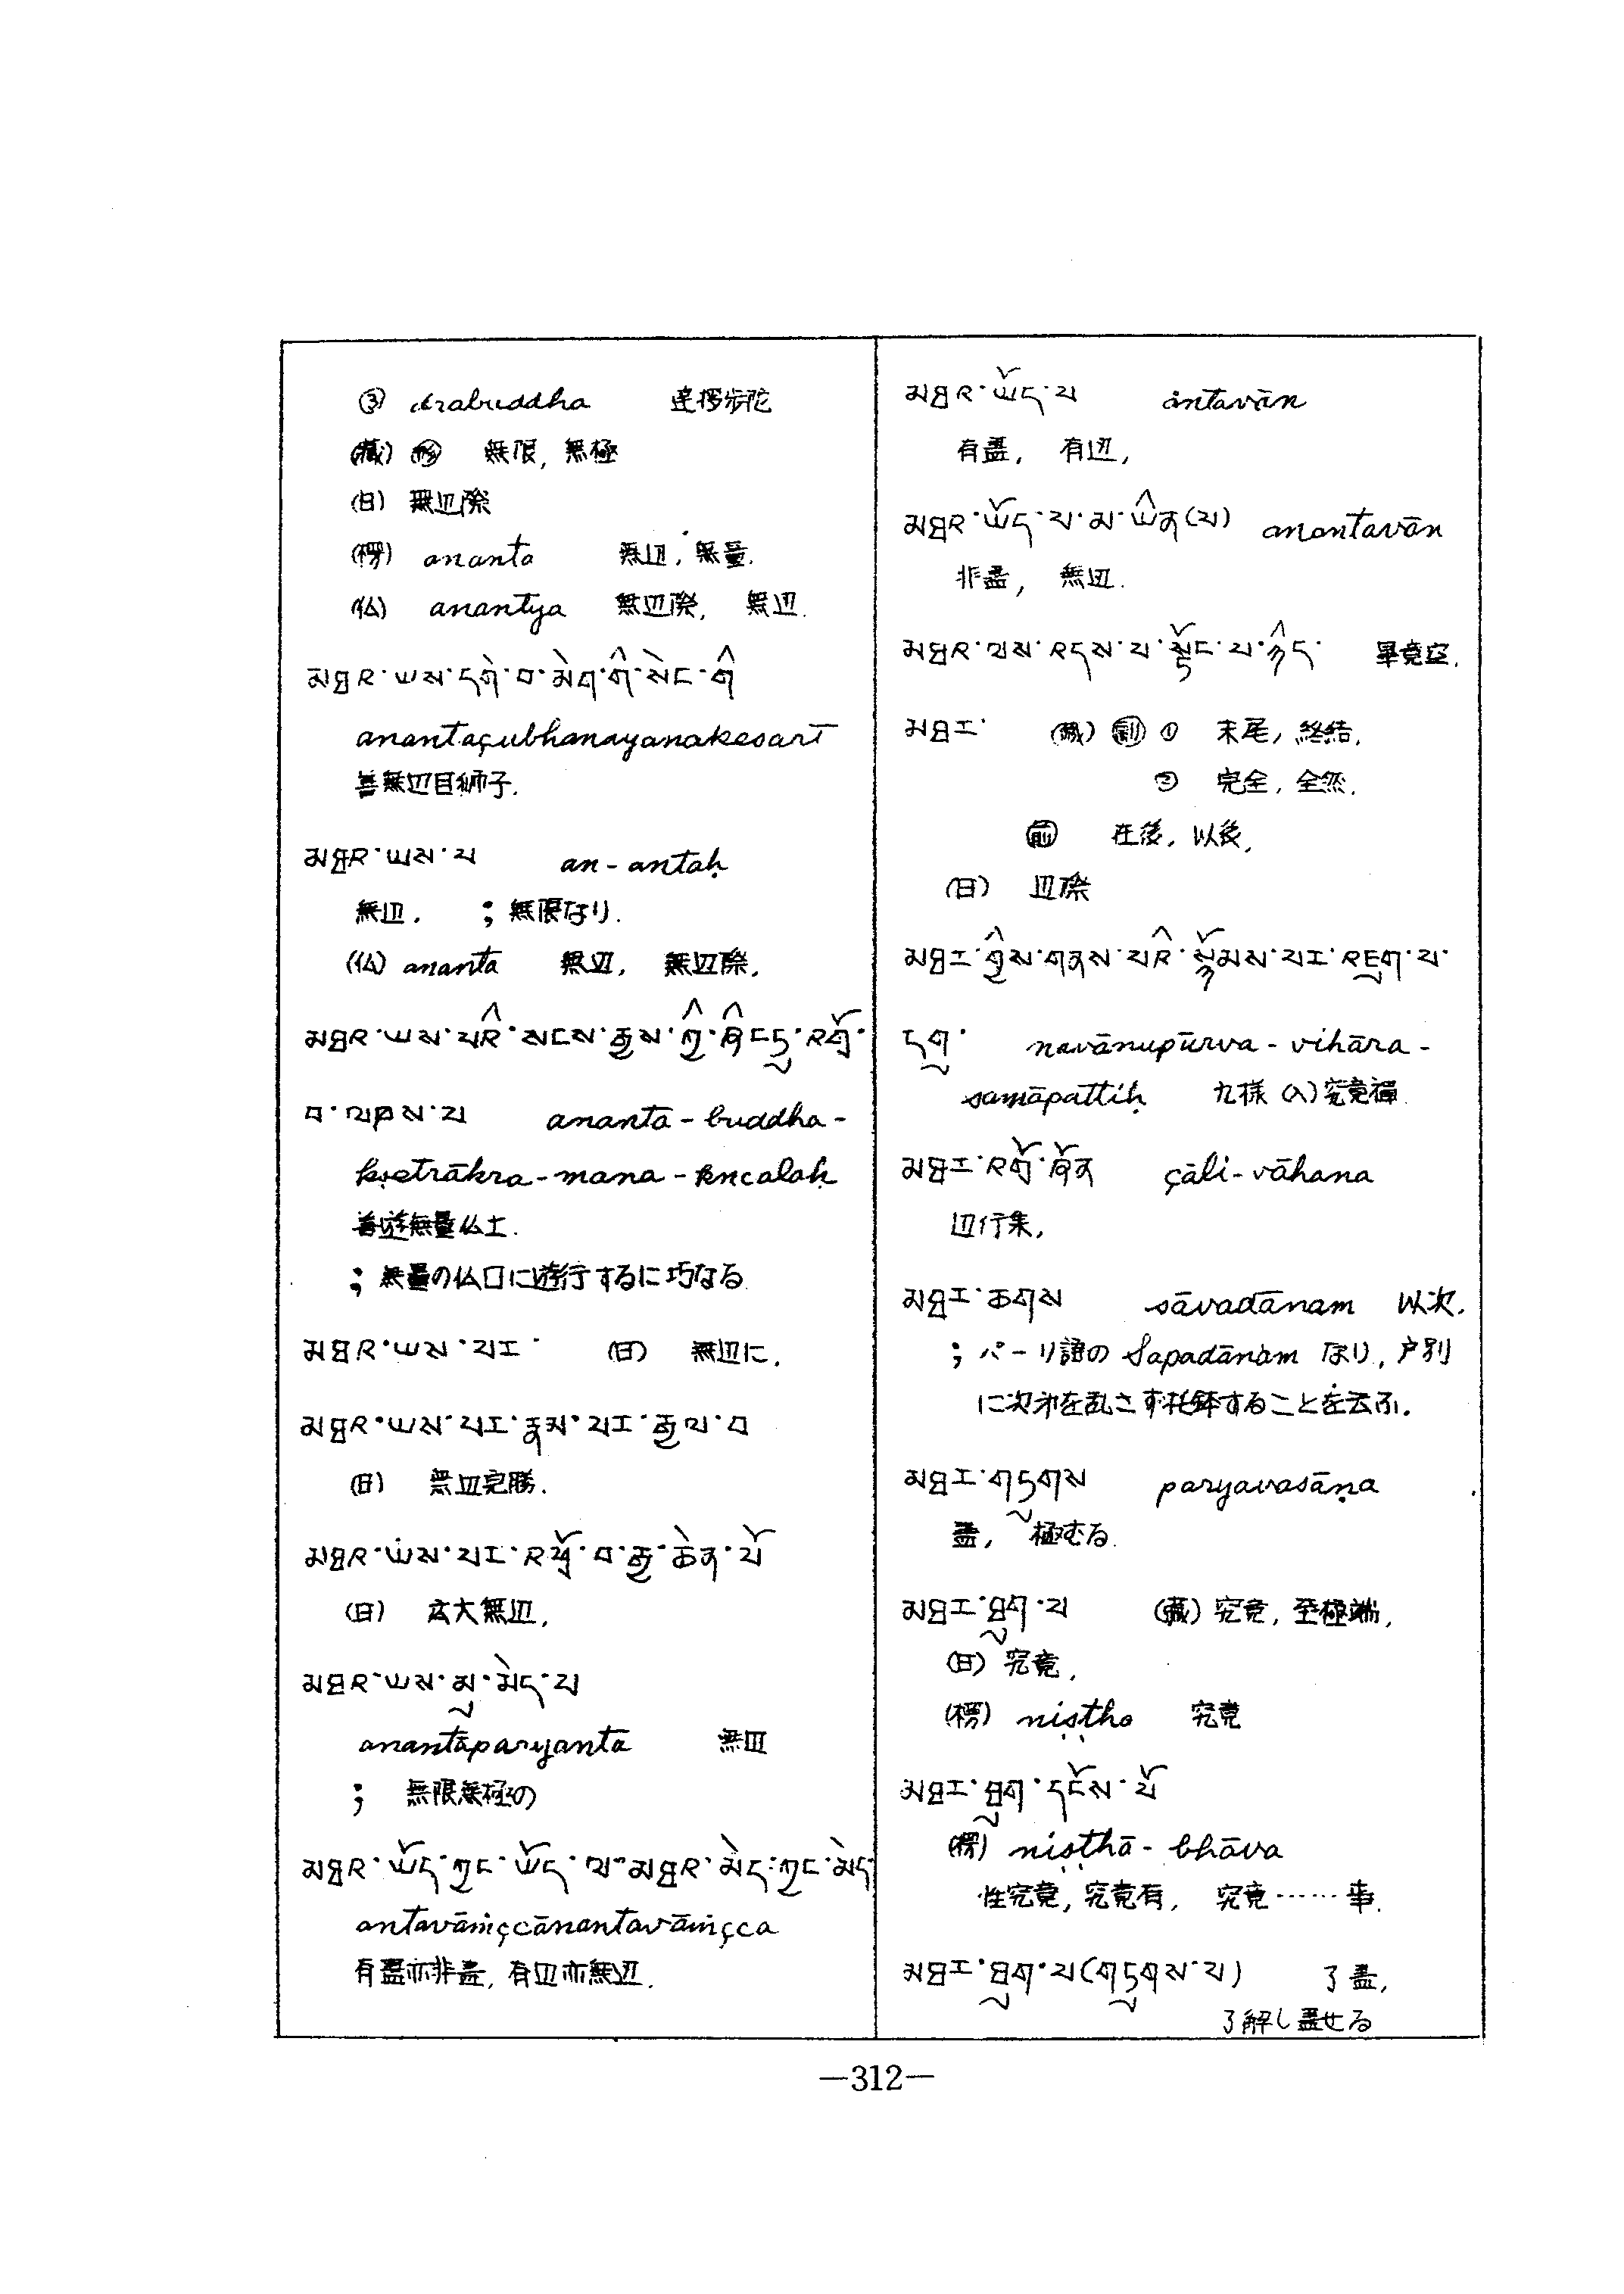 ③ drabuddha 達拶步陀
(藏) 無限, 無極
(日) 無辺際
(楞) ananta 無辺, 無量.
(仏) anantya 無辺際, 無辺.
མཐའ་ཡས་དགེ་བ་མིག་གི་སེང་གི
anantaçubhanayanakesarī
善無辺目獅子.
མཐའ་ཡས་པ an-antaḥ
無辺. ; 無限なり.
(仏) ananta 無辺, 無辺際.
མཐའ་ཡས་པའི་སངས་རྒྱས་ཀྱི་ཞིང་དུ་འགྲོ་
བ་ལཁས་པ ananta-buddha-
kṣetrākra-mana-kncalaḥ
善遊無量仏土.
; 無量の仏口に遊行するに巧なる
མཐའ་ཡས་པར་ (日) 無辺に.
མཐའ་ཡས་པར་རྣམ་པར་རྒྱལ་བ
(日) 無辺完勝.
མཐའ་ཡས་པར་འཕྲོ་བ་རྒྱ་ཆེན་པོ
(日) 玄大無辺.
མཐའ་ཡས་མུ་མེད་པ
anantāparyanta 無辺
; 無限無極の
མཐའ་ཡོད་ཀྱང་ཡོད་ལ་མཐའ་མེད་ཀྱང་མེད
antavāṁçcānantavāṁçca
有盡亦非盡, 有辺亦無辺.
མཐའ་ཡོད་པ antavān
有盡, 有辺,
མཐའ་ཡོད་པ་མ་ཡིན(པ) anantavān
非盡, 無辺.
མཐའ་ལས་འདས་པ་སྟོང་པ་ཉིད་ 畢竟空.
མཐར་ (藏) 副 ① 末尾, 終結,
② 完全, 全然.
前 在後, 以後,
(日) 辺際
མཐར་གྱིས་གནས་པའི་སྙོམས་པར་འཇུག་པ་
དགུ་ navānupūrva-vihāra-
samāpattiḥ 九様(入)究竟禪.
མཐར་འགྲོ་ཞོན çāli-vāhana
辺行集,
མཐར་ཆགས sāvadānam 以次.
; パーリ語の Sapadānam なり, 戸別
に次第を乱さず托鉢することを云ふ.
མཐར་གཏུགས paryavasāṇa
盡, 極むる.
མཐར་ཐུག་པ (藏) 究竟, 至極端,
(日) 究竟,
(楞) niṣṭha 究竟
མཐར་ཐུག་དངོས་པོ
(楞) niṣṭhā-bhāva
性究竟, 究竟有, 究竟……事.
མཐར་ཐུག་པ(གཏུགས་པ) 了盡,
了解し盡せる
—312—